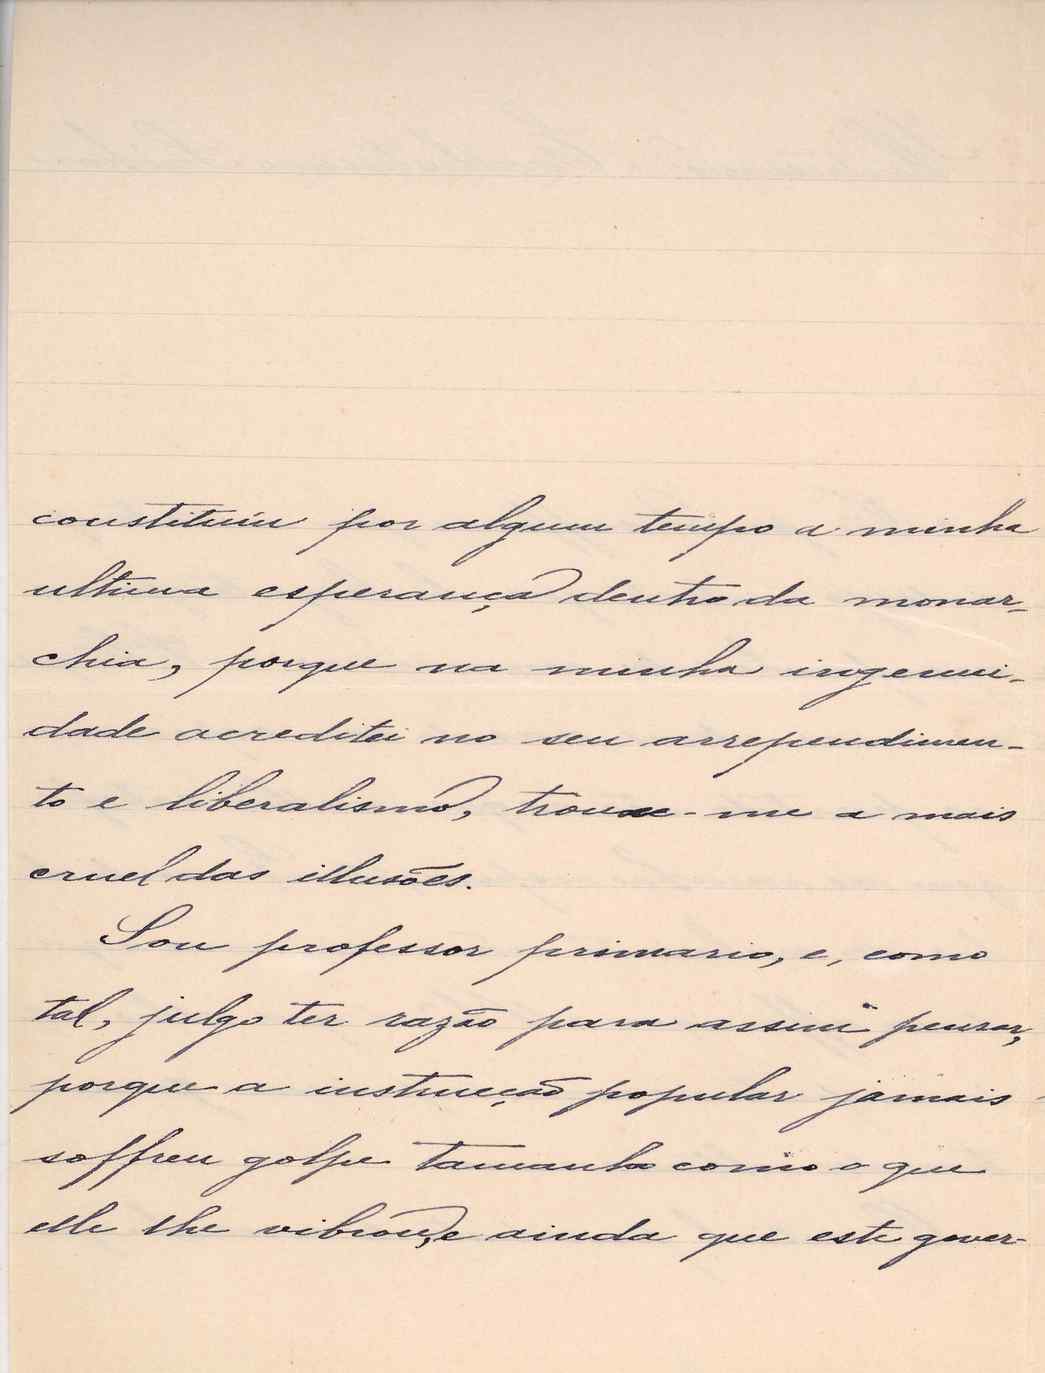 constituiu por algum tempo a minha
ultima esperança dentro da monar-
chia, porque na minha ingenui-
dade acreditei no seu arrependimen-
to e liberalismo, trouxe-me a mais
cruel das illusões.
Sou professor primario, e, como
tal, julgo ter razão para assim pensar,
porque a instrucção popular jamais
soffreu golpe tamanho como o que
elle lhe vibrou, e ainda que este gover-